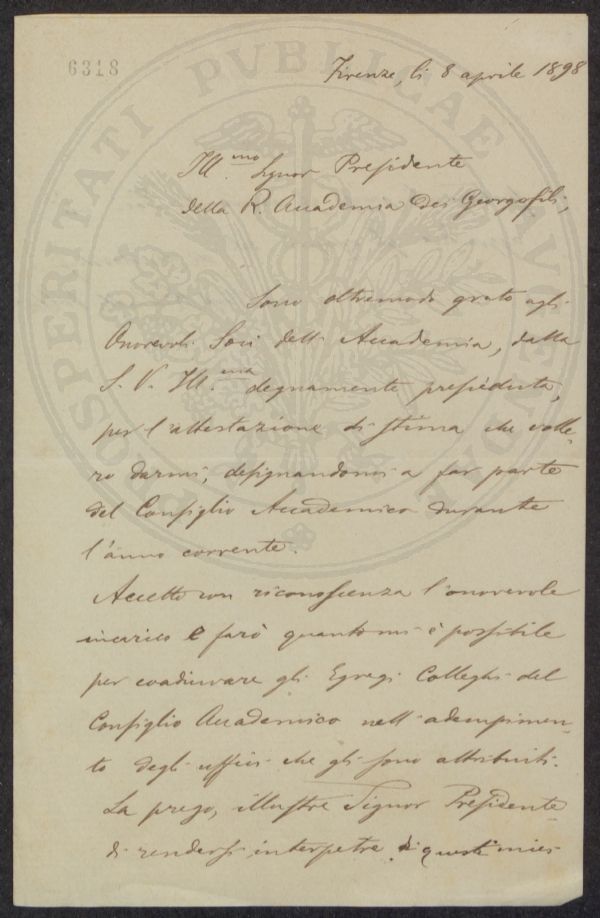 6318
PROSPERITATI PVBLICAE AVGENDAE
Firenze, li 8 aprile 1898
Ill.mo Signor Presidente
della R. Accademia dei Georgofili,
Sono oltremodo grato agli
Onorevoli Soci dell'Accademia, dalla
S. V. Ill.ma degnamente presieduta,
per l'attestazione di stima che volle-
ro darmi, designandomi a far parte
del Consiglio Accademico durante
l'anno corrente.
Accetto con riconoscenza l'onorevole
incarico e farò quanto mi è possibile
per coadiuvare gli Egregi Colleghi del
Consiglio Accademico nell'adempimen-
to degli uffici che gli sono attribuiti.
La prego, illustre Signor Presidente
di rendersi interpetre di questi miei